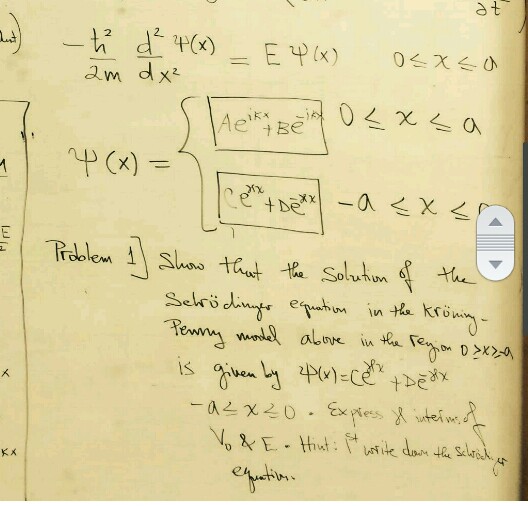 ∂t
-ħ²/2m d²Ψ(x)/dx² = E Ψ(x) 0 ≤ x ≤ a
Ψ(x) = { Ae^{iKx} + Be^{-iKx} 0 ≤ x ≤ a
Ce^{γx} + De^{-γx} -a ≤ x ≤
Problem 1] Show that the solution of the
Schrödinger equation in the Kröning-
Penny model above in the region 0≥x≥-a
is given by Ψ(x)=Ce^{γx} + De^{-γx}
-a ≤ x ≤ 0 . Express γ interms of
V₀ & E . Hint: 1st write down the Schrödinger
equation.
E
x
Kx